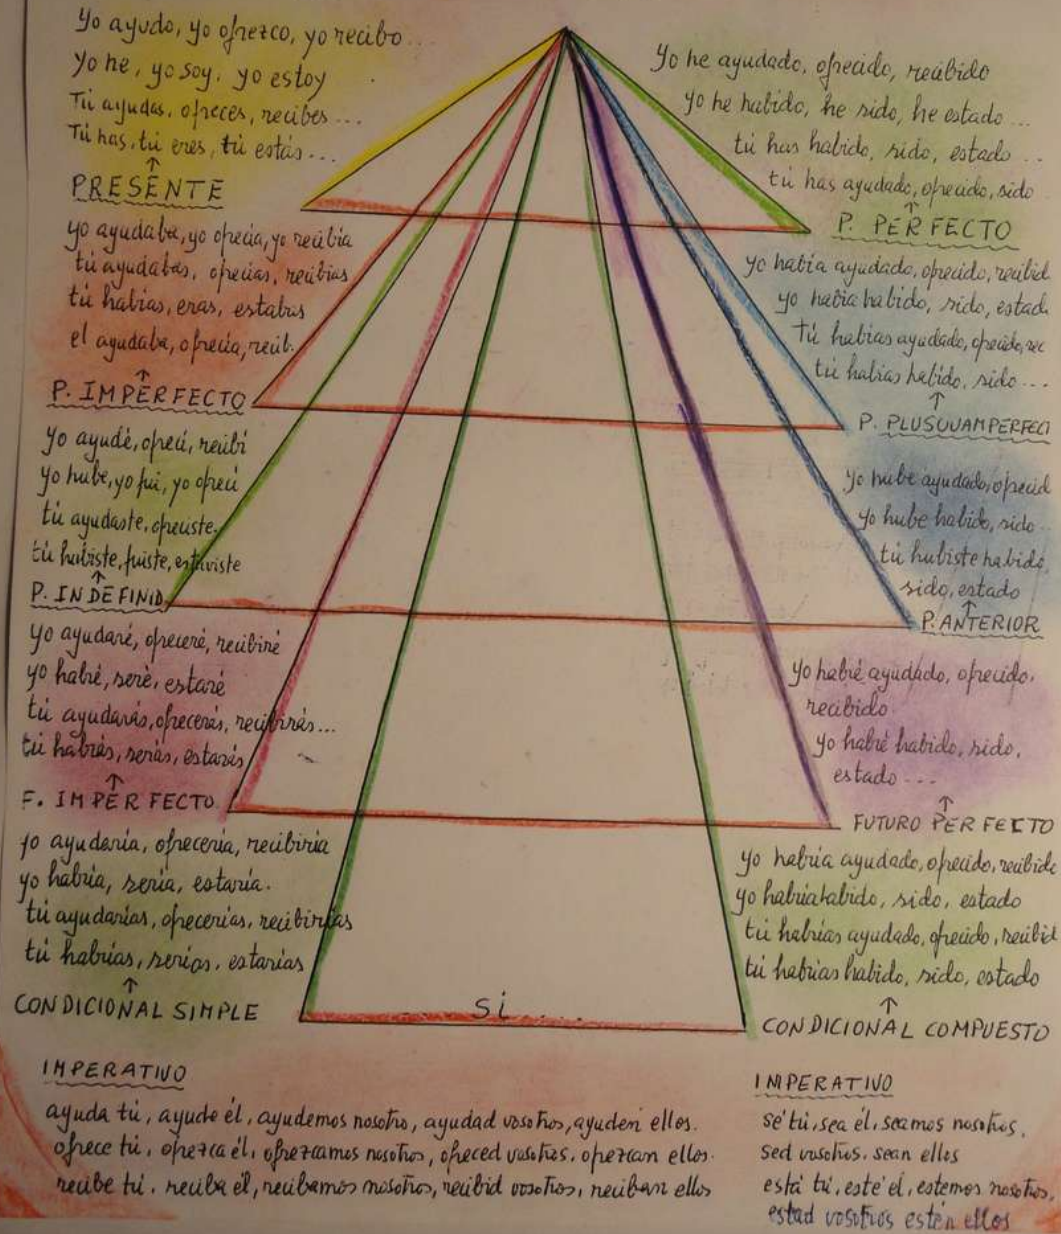 Yo ayudo, yo ofrezco, yo recibo...
Yo he, yo soy, yo estoy
Tú ayudas, ofreces, recibes...
Tú has, tú eres, tú estás...
↑
PRESENTE
yo ayudaba, yo ofrecía, yo recibía
tú ayudabas, ofrecías, recibías
tú habías, eras, estabas
el ayudaba, ofrecía, recib.
↑
P. IMPERFECTO
Yo ayudé, ofrecí, recibí
yo hube, yo fui, yo ofrecí
tú ayudaste, ofreciste.
tú hubiste, fuiste, estuviste
↑
P. INDEFINID
Yo ayudaré, ofreceré, recibiré
yo habré, seré, estaré
tú ayudarás, ofrecerás, recibirás...
tú habrás, serás, estarás
↑
F. IMPERFECTO
yo ayudaría, ofrecería, recibiría
yo habría, sería, estaría.
tú ayudarías, ofrecerías, recibirías
tú habrías, serías, estarías
↑
CONDICIONAL SIMPLE
Yo he ayudado, ofrecido, recibido
yo he habido, he sido, he estado...
tú has habido, sido, estado...
tú has ayudado, ofrecido, sido
↑
P. PERFECTO
yo había ayudado, ofrecido, recibid
yo había habido, sido, estad
Tú habías ayudado, ofrecido, rec
tú habías habido, sido...
↑
P. PLUSCUAMPERFECT
Yo hube ayudado, ofrecid
yo hube habido, sido...
tú hubiste habido,
sido, estado
↑
P. ANTERIOR
yo habré ayudado, ofrecido,
recibido
yo habré habido, sido,
estado...
↑
FUTURO PERFECTO
yo habría ayudado, ofrecido, recibido
yo habría habido, sido, estado
tú habrías ayudado, ofrecido, recibid
tú habrías habido, sido, estado
↑
CONDICIONAL COMPUESTO
Si....
IMPERATIVO
ayuda tú, ayude él, ayudemos nosotro, ayudad vosotros, ayuden ellos.
ofrece tú, ofrezca él, ofrezcamos nosotros, ofreced vosotros, ofrezcan ellos.
recibe tú, reciba él, recibamos nosotros, recibid vosotros, reciban ellos
IMPERATIVO
sé tú, sea él, seamos nosotros,
sed vosotros, sean ellos
está tú, esté él, estemos nosotros,
estad vosotros estén ellos